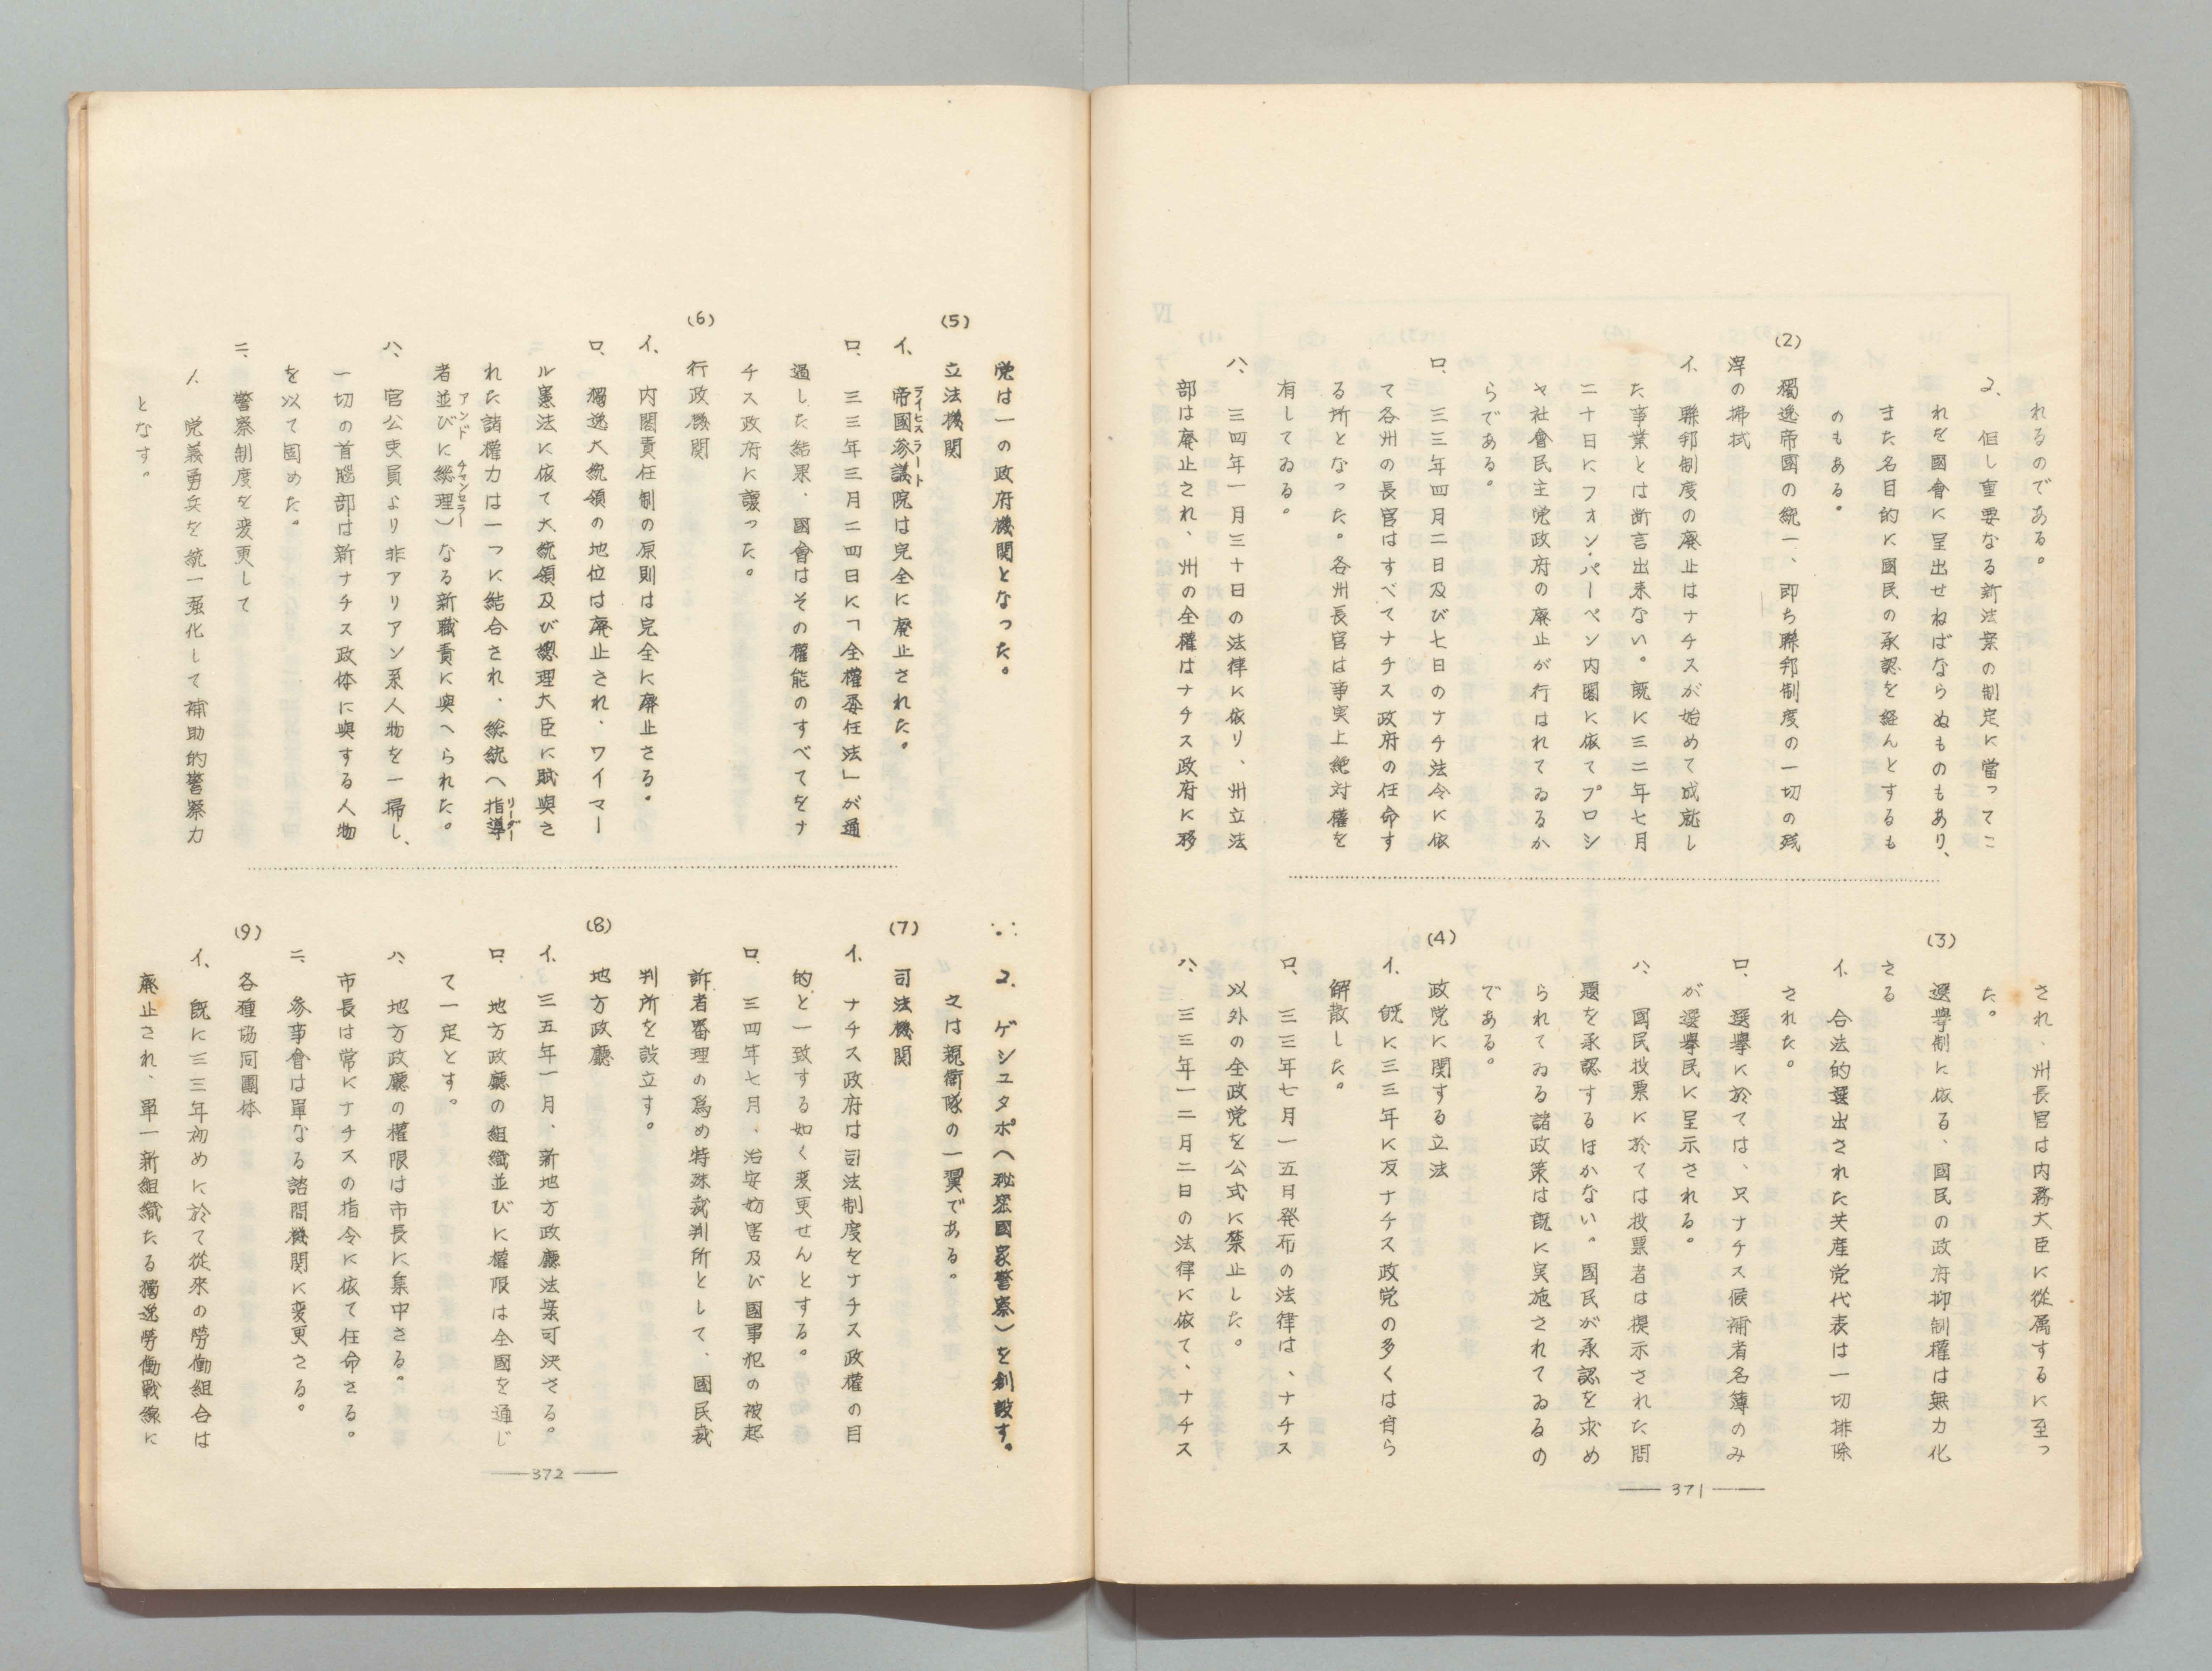 れるのである。
2、但し重要なる新法案の制定に當ってこ
れを國會に呈出せねばならぬものもあり、
また名目的に國民の承認を経んとするも
のもある。
(2)
獨逸帝國の統一、即ち聯邦制度の一切の残
滓の拂拭
イ、聯邦制度の廃止はナチスが始めて成就し
た事業とは断言出来ない。既に三二年七月
二十日にフォン・パーペン内閣に依てプロシ
ヤ社會民主党政府の廃止が行はれてゐるか
らである。
ロ、三三年四月二日及び七日のナチ法令に依
て各州の長官はすべてナチス政府の任命す
る所となった。各州長官は事実上絶対権を
有してゐる。
ハ、三四年一月三十日の法律に依り、州立法
部は廃止され、州の全權はナチス政府に移
され、州長官は内務大臣に從属するに至っ
た。
(3)
選擧制に依る、國民の政府抑制權は無力化
さる
イ、合法的選出された共産党代表は一切排除
された。
ロ、選擧に於ては、只ナチス候補者名簿のみ
が選擧民に呈示される。
ハ、國民投票に於ては投票者は提示された問
題を承認するほかない。國民が承認を求め
られてゐる諸政策は既に実施されてゐるの
である。
(4)
政党に関する立法
イ、既に三三年に反ナチス政党の多くは自ら
解散した。
ロ、三三年七月一五日発布の法律は、ナチス
以外の全政党を公式に禁止した。
ハ、三三年一二月二日の法律に依て、ナチス
371
党は一の政府機関となった。
(5)
立法機関
イ、帝國参議院は完全に廃止された。
ライヒスラート
ロ、三三年三月二四日に「全權委任法」が通
過した結果、國會はその權能のすべてをナ
チス政府に讓った。
(6)
行政機関
イ、内閣責任制の原則は完全に廃止さる。
ロ、獨逸大統領の地位は廃止され、ワイマー
ル憲法に依て大統領及び總理大臣に賦與さ
れた諸權力は一つに結合され、総統へ指導
リーダー
者並びに総理)なる新職責に與へられた。
アンド チャンセラー
ハ、官公吏員より非アリアン系人物を一掃し、
一切の首腦部は新ナチス政体に與する人物
を以て固めた。
ニ、警察制度を変更して
1、党義勇兵を統一强化して補助的警察力
となす。
2、ゲシュタポへ秘密國家警察)を創設す。
之は親衛隊の一翼である。
(7)
司法機関
イ、ナチス政府は司法制度をナチス政権の目
的と一致する如く変更せんとする。
ロ、三四年七月、治安妨害及び國事犯の被起
訴者審理の爲め特殊裁判所として、國民裁
判所を設立す。
(8)
地方政廳
イ、三五年一月、新地方政廳法案可決さる。
ロ、地方政廳の組織並びに權限は全國を通じ
て一定とす。
ハ、地方政廳の權限は市長に集中さる。
市長は常にナチスの指令に依て任命さる。
ニ、参事會は單なる諮問機関に変更さる。
(9)
各種協同團体
イ、既に三三年初めに於て從來の勞働組合は
廃止され、單一新組織たる獨逸勞働戰線に
372